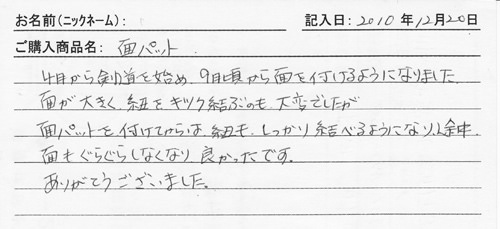 お名前(ニックネーム): 記入日: 2010年12月20日
ご購入商品名: 面パット
4月から剣道を始め、9月頃から面を付けるようになりました。
面が大きく、紐をキツク結ぶのも、大変でしたが
面パットを付けてからは、紐も、しっかり結べるようになり、途中、
面もぐらぐらしなくなり良かったです。
ありがとうございました。